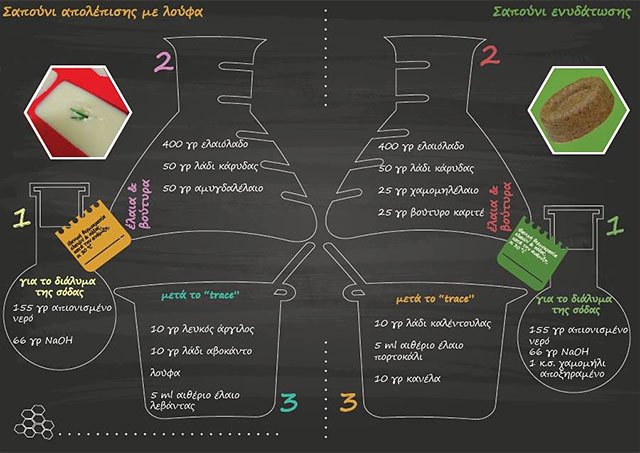 Σαπούνι απολέπισης με λούφα
2
400 γρ ελαιόλαδο
50 γρ λάδι κάρυδας
50 γρ αμυγδαλέλαιο
έλαια &
βούτυρα
1
για το διάλυμα
της σόδας
155 γρ απιονισμένο
νερό
66 γρ NaOH
μετά το "trace"
10 γρ λευκός άργιλος
10 γρ λάδι αβοκάντο
λούφα
5 ml αιθέριο έλαιο
λεβάντας
3
Σαπούνι ενυδάτωσης
2
400 γρ ελαιόλαδο
50 γρ λάδι κάρυδας
25 γρ χαμομηλέλαιο
25 γρ βούτυρο καριτέ
έλαια &
βούτυρα
1
για το διάλυμα
της σόδας
155 γρ απιονισμένο
νερό
66 γρ NaOH
1 κ.σ. χαμομήλι
αποξηραμένο
μετά το "trace"
10 γρ λάδι καλέντουλας
5 ml αιθέριο έλαιο
πορτοκάλι
10 γρ κανέλα
3